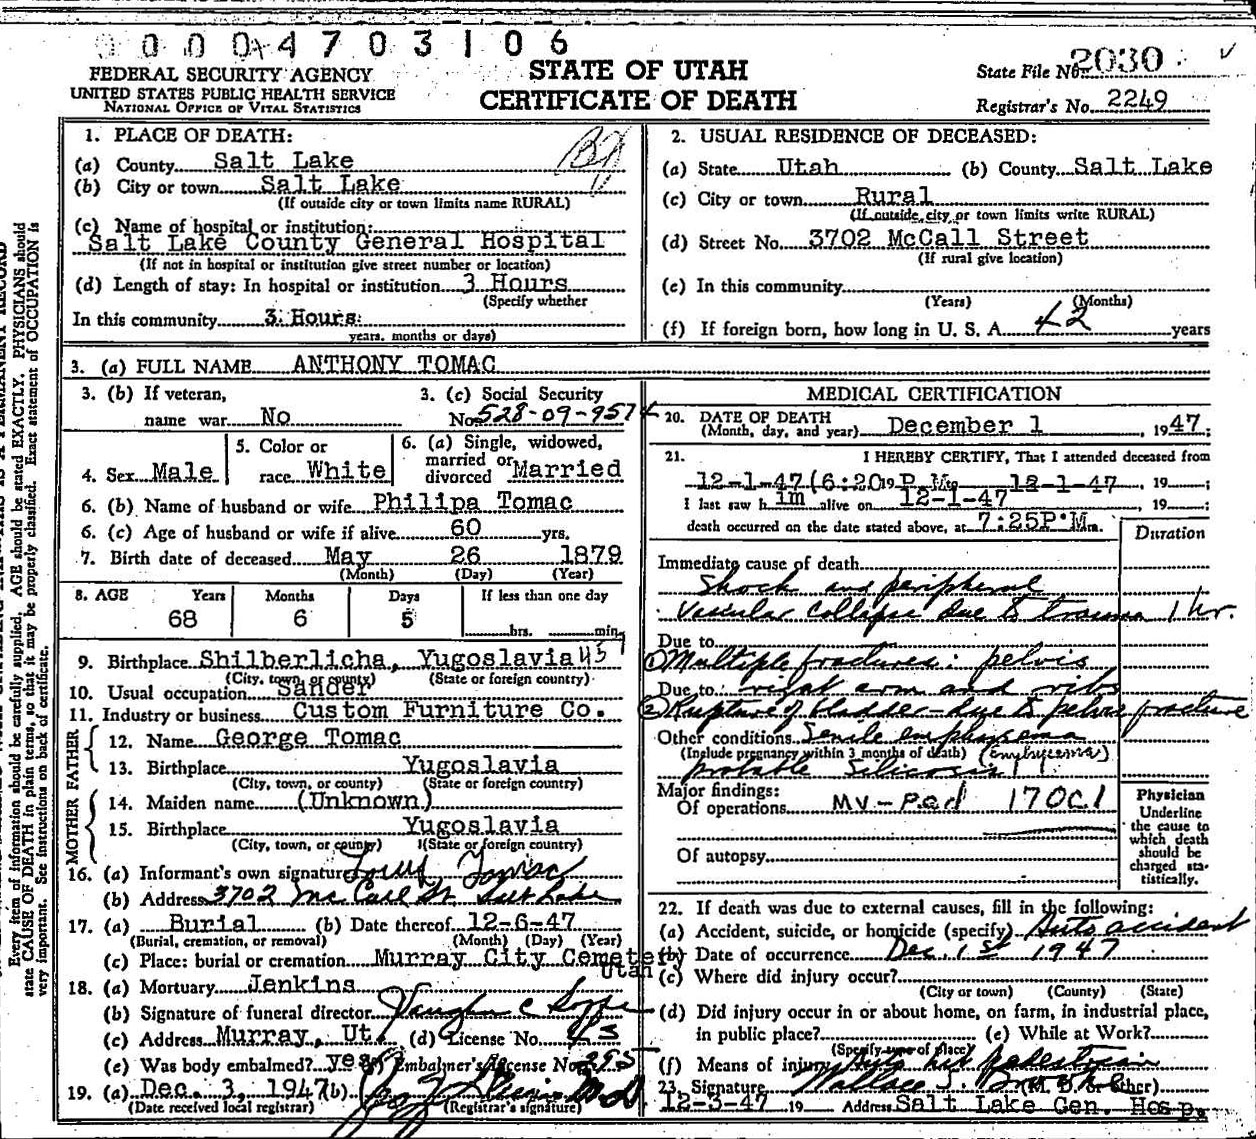 0 0 0 0 4 7 0 3 1 0 6
FEDERAL SECURITY AGENCY
UNITED STATES PUBLIC HEALTH SERVICE
NATIONAL OFFICE OF VITAL STATISTICS
STATE OF UTAH
CERTIFICATE OF DEATH
State File No. 2030
Registrar's No. 2249
1. PLACE OF DEATH:
(a) County Salt Lake
(b) City or town Salt Lake
(If outside city or town limits name RURAL)
(c) Name of hospital or institution:
Salt Lake County General Hospital
(If not in hospital or institution give street number or location)
(d) Length of stay: In hospital or institution 3 Hours
(Specify whether
In this community 3 Hours
years, months or days)
2. USUAL RESIDENCE OF DECEASED:
(a) State Utah (b) County Salt Lake
(c) City or town Rural
(If outside city or town limits write RURAL)
(d) Street No. 3702 McCall Street
(If rural give location)
(e) In this community
(Years) (Months)
(f) If foreign born, how long in U. S. A. 42 years
3. (a) FULL NAME ANTHONY TOMAC
3. (b) If veteran,
name war No
3. (c) Social Security
No. 528-09-9574
4. Sex Male
5. Color or
race White
6. (a) Single, widowed,
married or
divorced Married
6. (b) Name of husband or wife Philipa Tomac
6. (c) Age of husband or wife if alive 60 yrs.
7. Birth date of deceased May 26 1879
(Month) (Day) (Year)
8. AGE Years Months Days If less than one day
68 6 5 hrs. min.
9. Birthplace Shilberlicha, Yugoslavia
(City, town, or county) (State or foreign country)
10. Usual occupation Sander
11. Industry or business Custom Furniture Co.
FATHER
12. Name George Tomac
13. Birthplace Yugoslavia
(City, town, or county) (State or foreign country)
MOTHER
14. Maiden name (Unknown)
15. Birthplace Yugoslavia
(City, town, or county) (State or foreign country)
16. (a) Informant's own signature Tomac
(b) Address 3702 Mc Call St Salt Lake
17. (a) Burial (b) Date thereof 12-6-47
(Burial, cremation, or removal) (Month) (Day) (Year)
(c) Place: burial or cremation Murray City Cemetery
Utah
18. (a) Mortuary Jenkins
(b) Signature of funeral director Vaughn C
(c) Address Murray, Ut. (d) License No.
(e) Was body embalmed? yes Embalmer's License No. 295
19. (a) Dec. 3, 1947 (b)
(Date received local registrar) (Registrar's signature)
MEDICAL CERTIFICATION
20. DATE OF DEATH
(Month, day, and year) December 1, 1947;
21. I HEREBY CERTIFY, That I attended deceased from
12-1-47 (6:20 19 P.M. 12-1-47, 19 ;
I last saw him alive on 12-1-47, 19 ;
death occurred on the date stated above, at 7:25P.M.
Duration
Immediate cause of death
Shock and peripheral
vascular collapse due to trauma 1 hr.
Due to
(1) Multiple fractures: pelvis
Due to right arm and ribs
(2) Rupture of bladder - due to pelvis fracture
Other conditions Senile emphysema
(Include pregnancy within 3 months of death) (Emphysema)
probable Silicosis
Major findings:
Of operations MV-Ped 170C1
Of autopsy
Physician
Underline
the cause to
which death
should be
charged sta-
tistically.
22. If death was due to external causes, fill in the following:
(a) Accident, suicide, or homicide (specify) Auto accident
(b) Date of occurrence Dec. 1st 1947
(c) Where did injury occur?
(City or town) (County) (State)
(d) Did injury occur in or about home, on farm, in industrial place,
in public place? (e) While at Work?
(Specify type of place)
(f) Means of injury Auto hit pedestrian
23. Signature Wallace (M. D. or other)
12-3-47 19 Address Salt Lake Gen. Hosp.
Every item of information should be carefully supplied. AGE should be stated EXACTLY. PHYSICIANS should
state CAUSE OF DEATH in plain terms, so that it may be properly classified. Exact statement of OCCUPATION is
very important. See instructions on back of certificate.